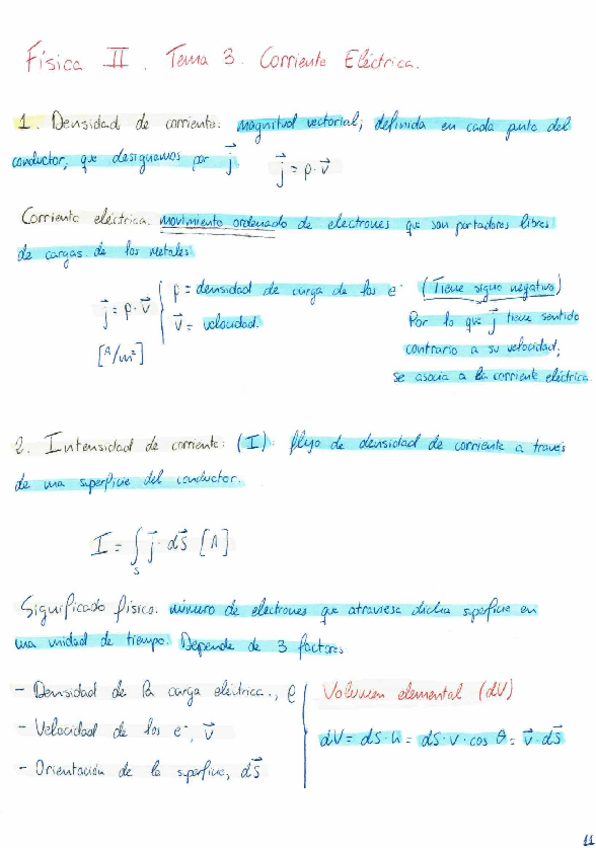 Física II. Tema 3. Corriente Eléctrica.
1. Densidad de corriente: magnitud vectorial, definida en cada punto del
conductor, que designamos por j⃗    j⃗ = ρ·v⃗
Corriente eléctrica. movimiento ordenado de electrones que son portadores libres
de cargas de los metales.
j⃗ = ρ·v⃗ { ρ = densidad de carga de los e⁻ (Tiene signo negativo)
[A/m²]    v⃗ = velocidad.
Por lo que j⃗ tiene sentido
contrario a su velocidad;
se asocia a la corriente eléctrica
2. Intensidad de corriente: (I): flujo de densidad de corriente a través
de una superficie del conductor.
I = ∫_S j⃗·dS⃗ [A]
Significado físico: número de electrones que atraviesa dicha superficie en
una unidad de tiempo. Depende de 3 factores
- Densidad de la carga eléctrica., ρ
- Velocidad de los e⁻, v⃗
- Orientación de la superficie, dS⃗
Volumen elemental (dV)
dV = dS·h = dS·v·cos θ = v⃗·dS⃗
11